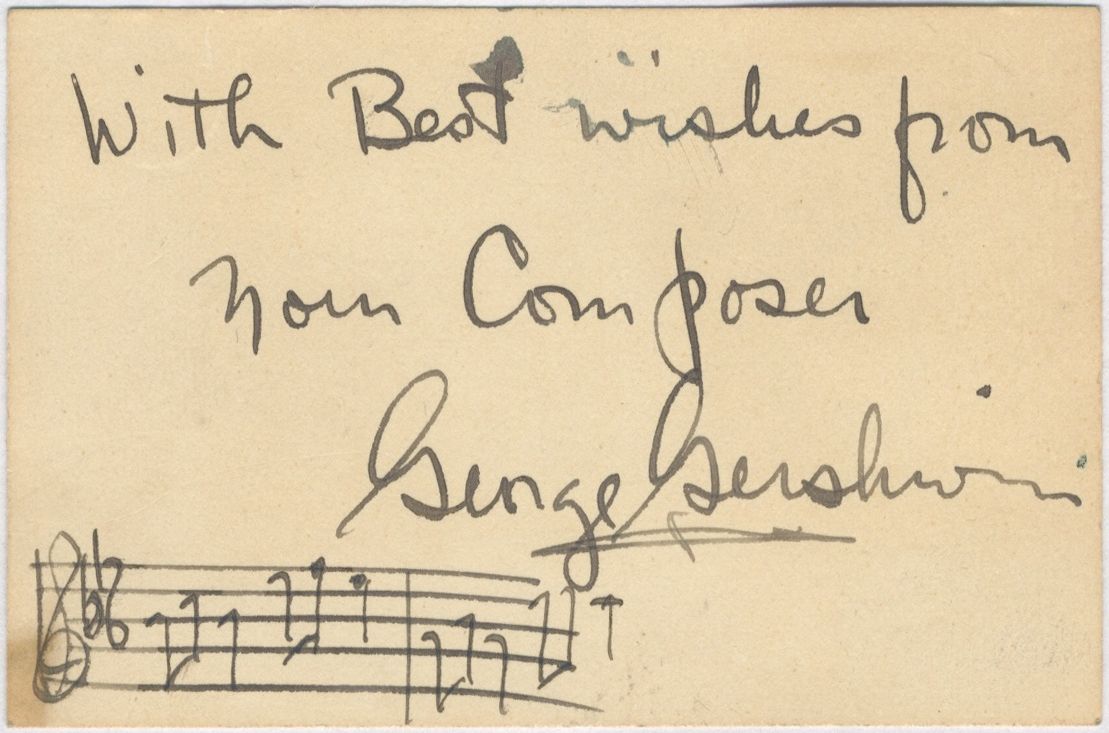 With Best wishes from
your Composer
George Gershwin